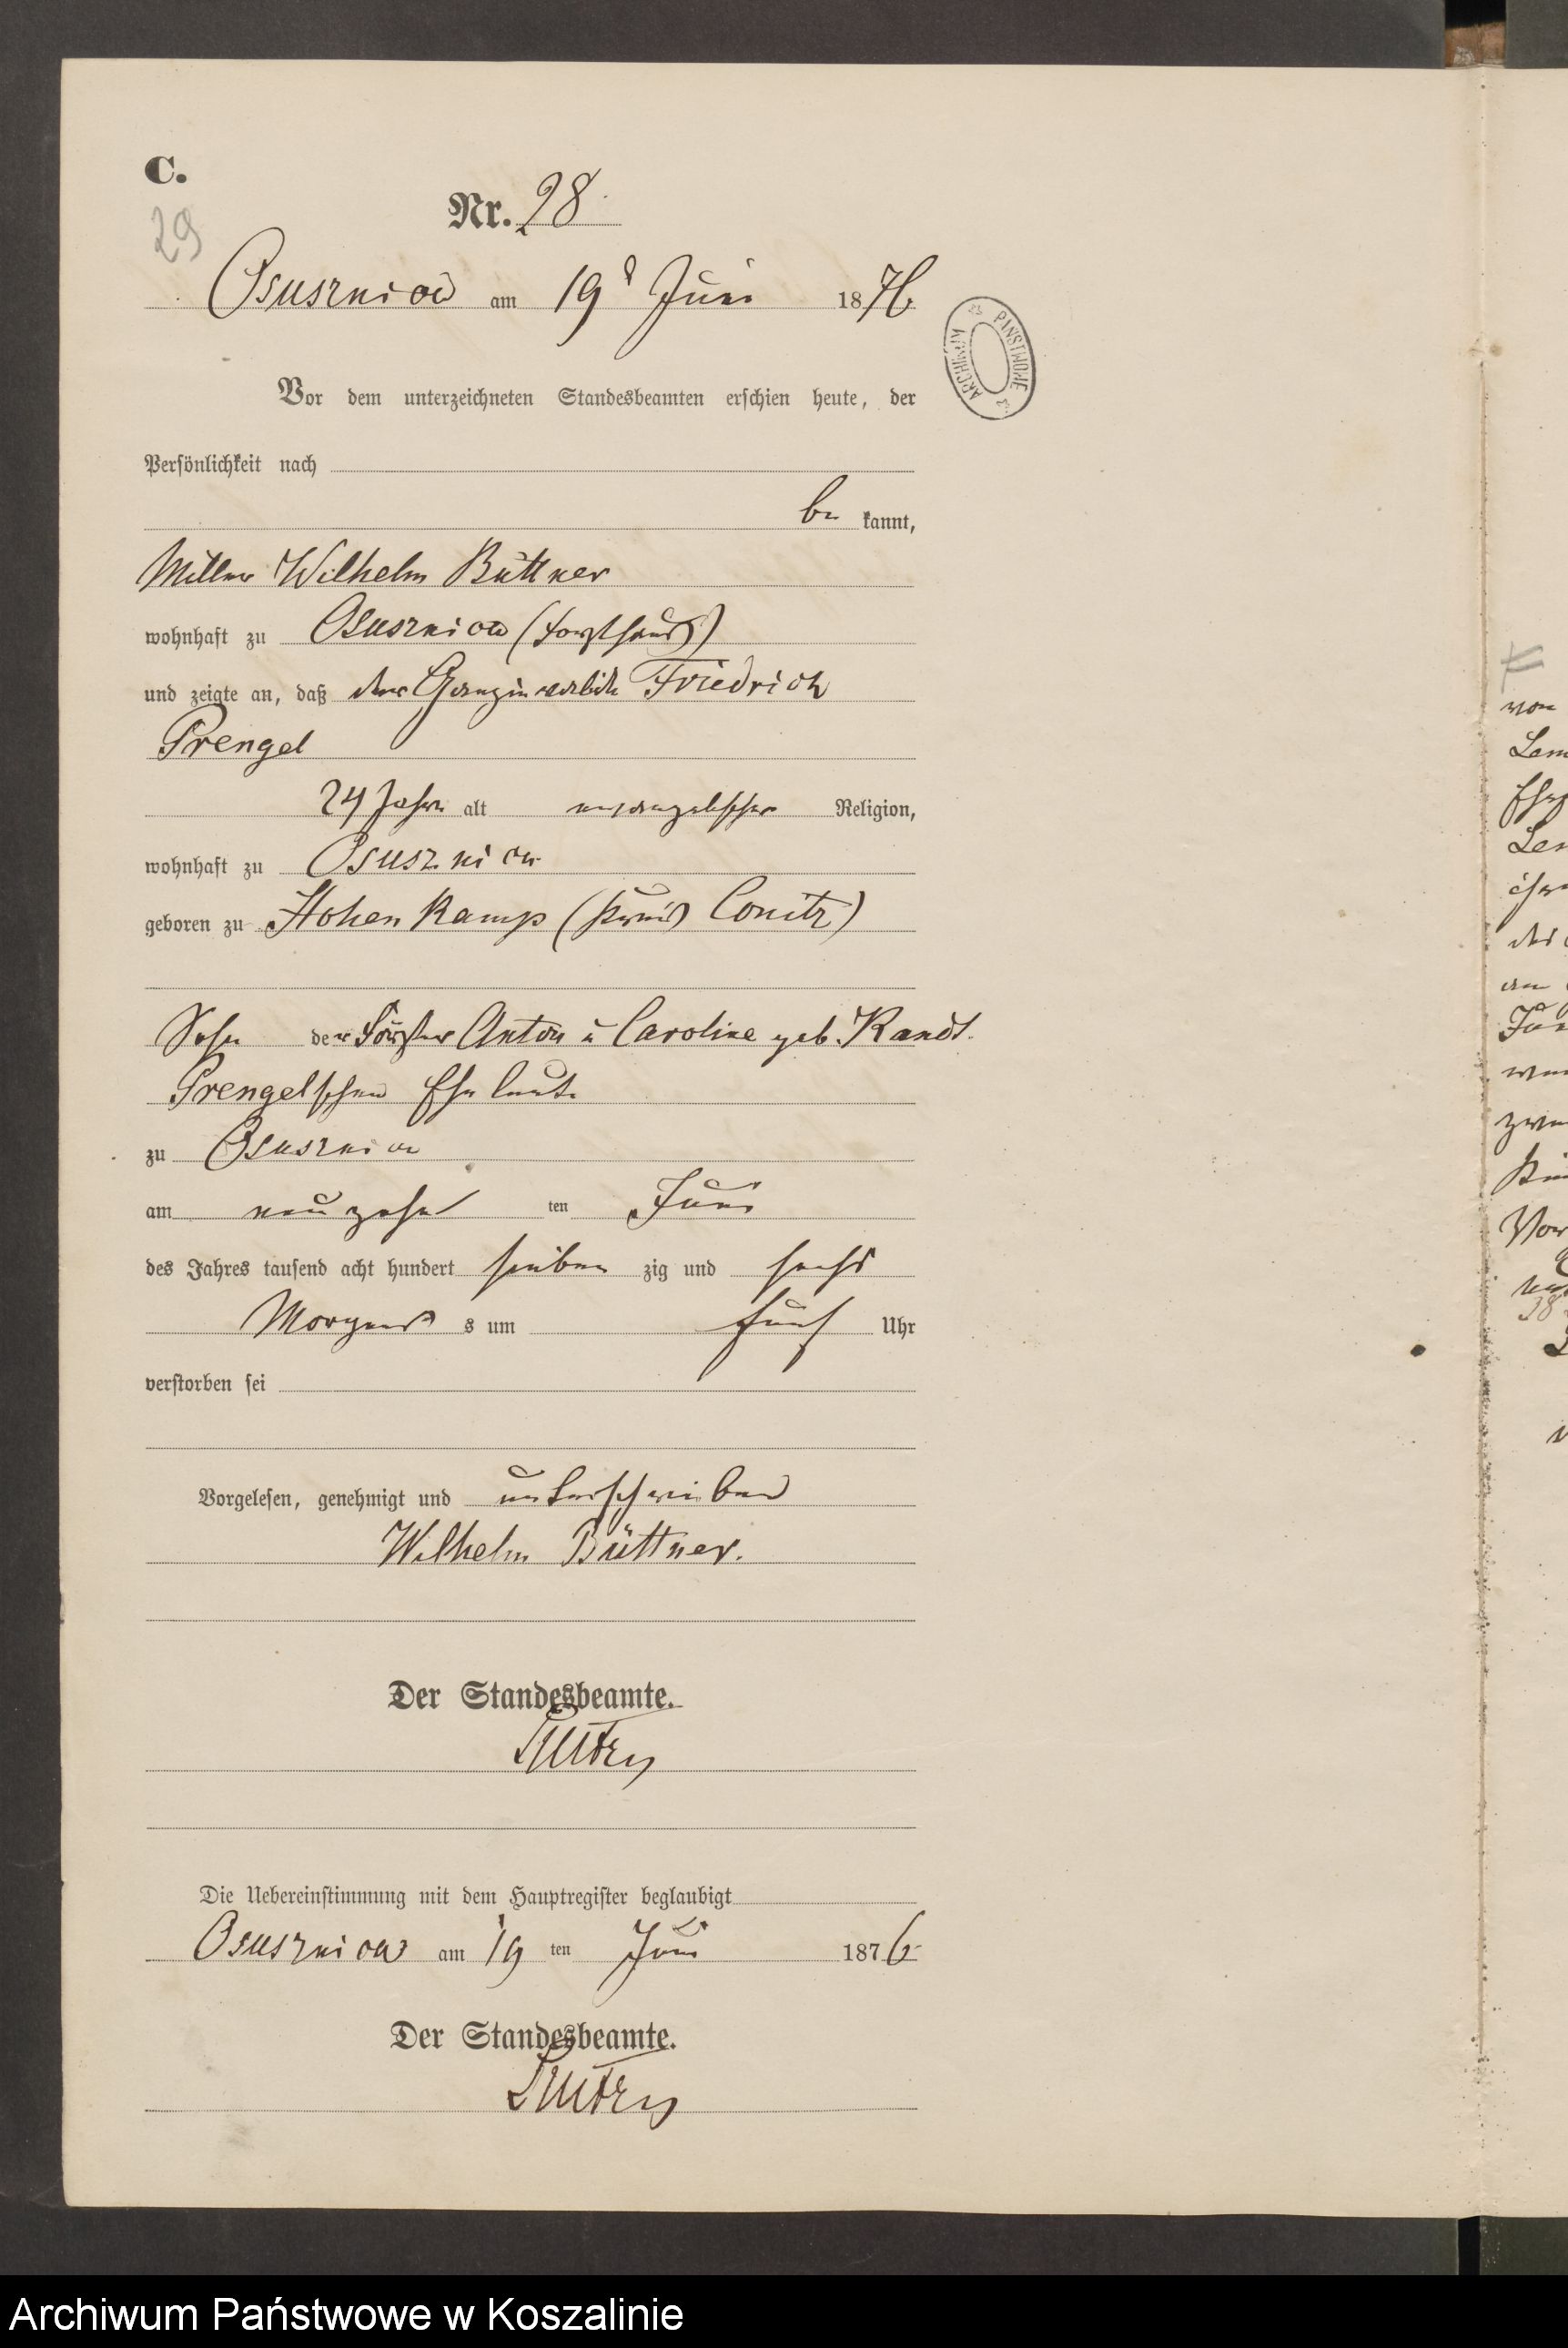 C.
29
Nr. 28
Osusznica am 19 Juni 1876
ARCHIWUM PAŃSTWOWE
Vor dem unterzeichneten Standesbeamten erschien heute, der
Persönlichkeit nach
be kannt,
Wilhelm Büttner
wohnhaft zu Osusznica (Forsthaus)
und zeigte an, daß der Friedrich
Prengel
24 Jahr alt evangelischer Religion,
wohnhaft zu Osusznica
geboren zu Hohenkamp (Kreis Conitz)
Sohn der Förster Anton u Caroline geb. Kandt
Prengelschen Eheleute
zu Osusznica
am neunzehn ten Juni
des Jahres tausend acht hundert sieben zig und sechs
Morgens s um fünf Uhr
verstorben sei
Vorgelesen, genehmigt und unterschrieben
Wilhelm Büttner.
Der Standesbeamte.
Die Uebereinstimmung mit dem Hauptregister beglaubigt
Osusznica am 19 ten Juni 1876
Der Standesbeamte.
von
Archiwum Państwowe w Koszalinie